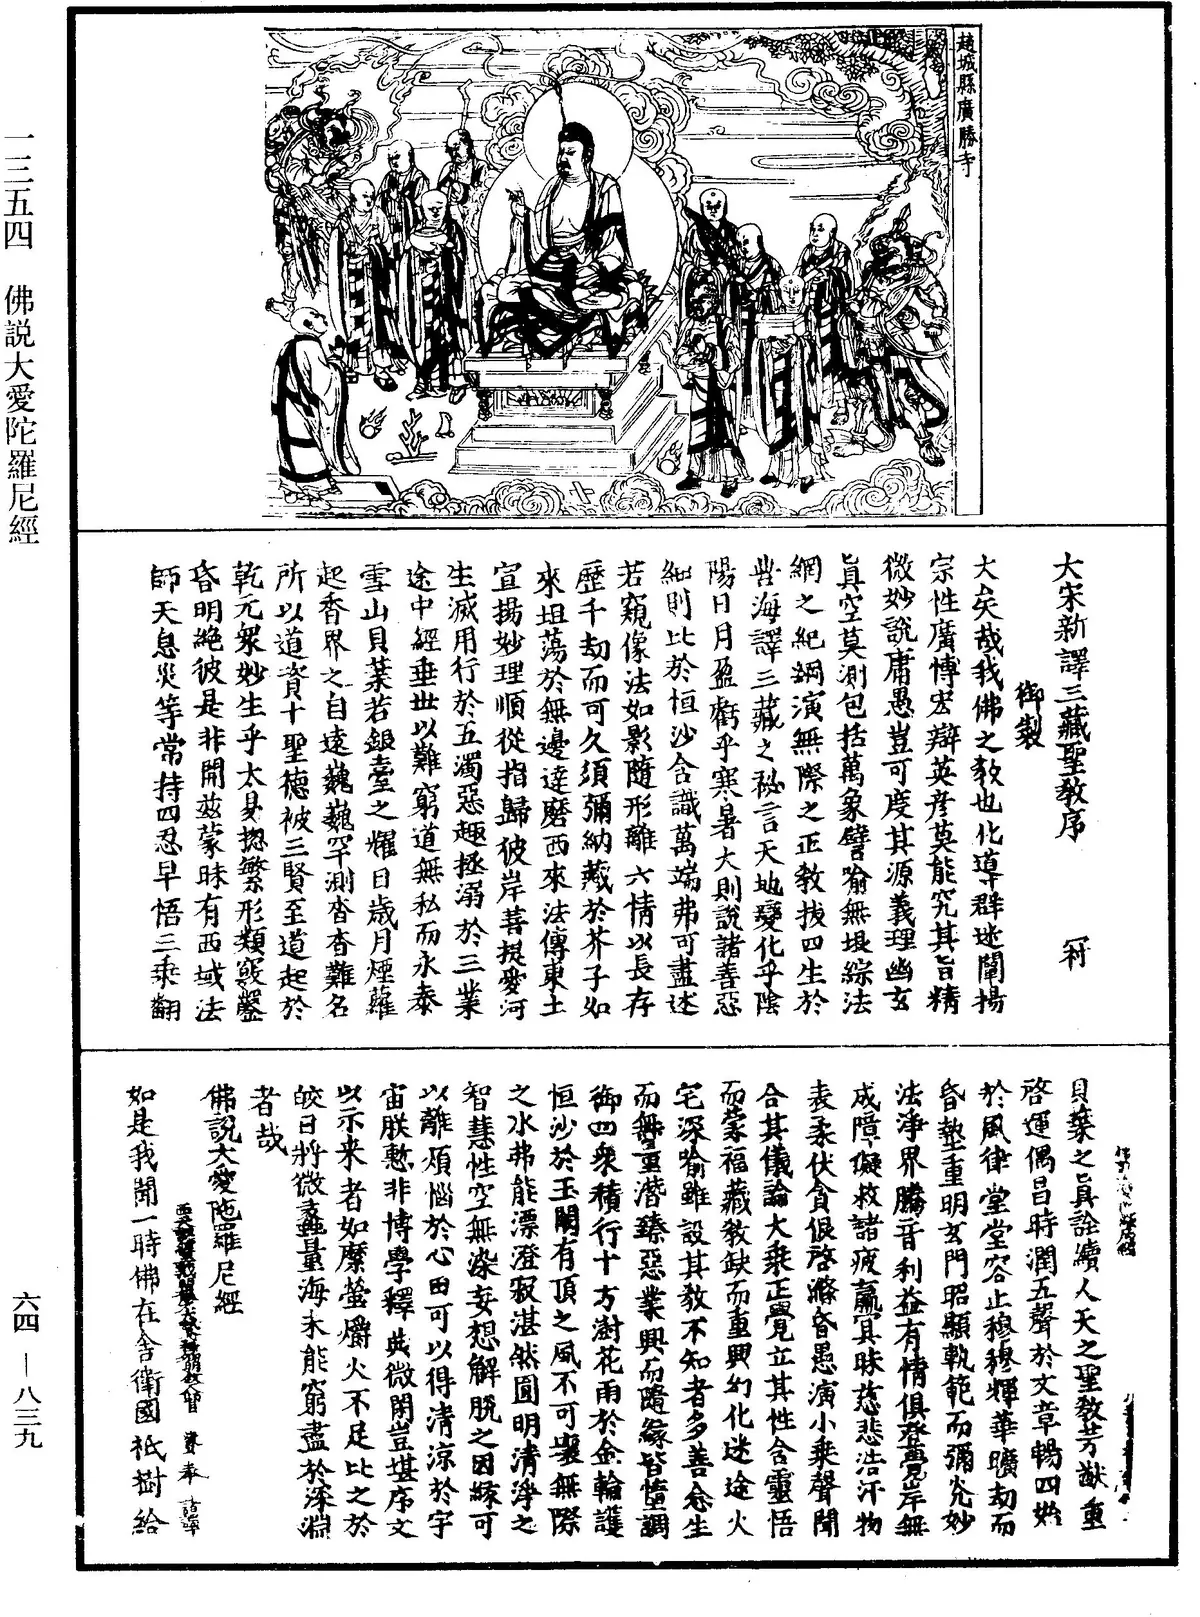 趙城縣廣勝寺
大宋新譯三藏聖教序
御製
大矣哉我佛之教也化導群迷闡揚
宗性廣博宏辯英彥莫能究其旨精
微妙說庸愚豈可度其源義理幽玄
真空莫測包括萬象譬喻無垠綜法
網之紀綱演無際之正教拔四生於
苦海譯三藏之秘言天地變化乎陰
陽日月盈虧乎寒暑大則說諸善惡
細則比於恒沙含識萬端弗可盡述
若窺像法如影隨形離六情以長存
歷千劫而可久須彌納藏於芥子如
來坦蕩於無邊達磨西來法傳東土
宣揚妙理順從指歸彼岸菩提愛河
生滅用行於五濁惡趣拯溺於三業
途中經垂世以難窮道無私而永泰
雪山貝葉若銀臺之耀日歲月煙蘿
起香界之自遠巍巍罕測杳杳難名
所以道資十聖德被三賢至道起於
乾元眾妙生乎太易揔繁形類竅鑿
昏明絕彼是非開茲蒙昧有西域法
師天息災等常持四忍早悟三乘翻
貝葉之真詮續人天之聖教芳猷重
啓運偶昌時潤五聲於文章暢四始
於風律堂堂容止穆穆輝華曠劫而
昏墊重明玄門昭顯軌範而彌光妙
法淨界騰音利益有情俱登覺岸無
成障礙救諸疲羸冥昧慈悲浩汗物
表柔伏貪佷啓滌昏愚演小乘聲聞
合其儀論大乘正覺立其性含靈悟
而蒙福藏教缺而重興幻化迷途火
宅深喻雖設其教不知者多善念生
而無量潛臻惡業興而隨緣皆墮調
御四眾積行十方澍花雨於金輪護
恒沙於玉闕有頂之風不可壞無際
之水弗能漂澄寂湛然圓明清淨之
智慧性空無染妄想解脫之因緣可
以離煩惱於心田可以得清涼於宇
宙朕慙非博學釋典微閑豈堪序文
以示來者如縻螢爝火不足比之於
皎日將微蠡量海未能窮盡於深淵
者哉
佛說大愛陁羅尼經
如是我聞一時佛在舍衛國祇樹給
一三五四　佛説大愛陀羅尼經
六四—八三九